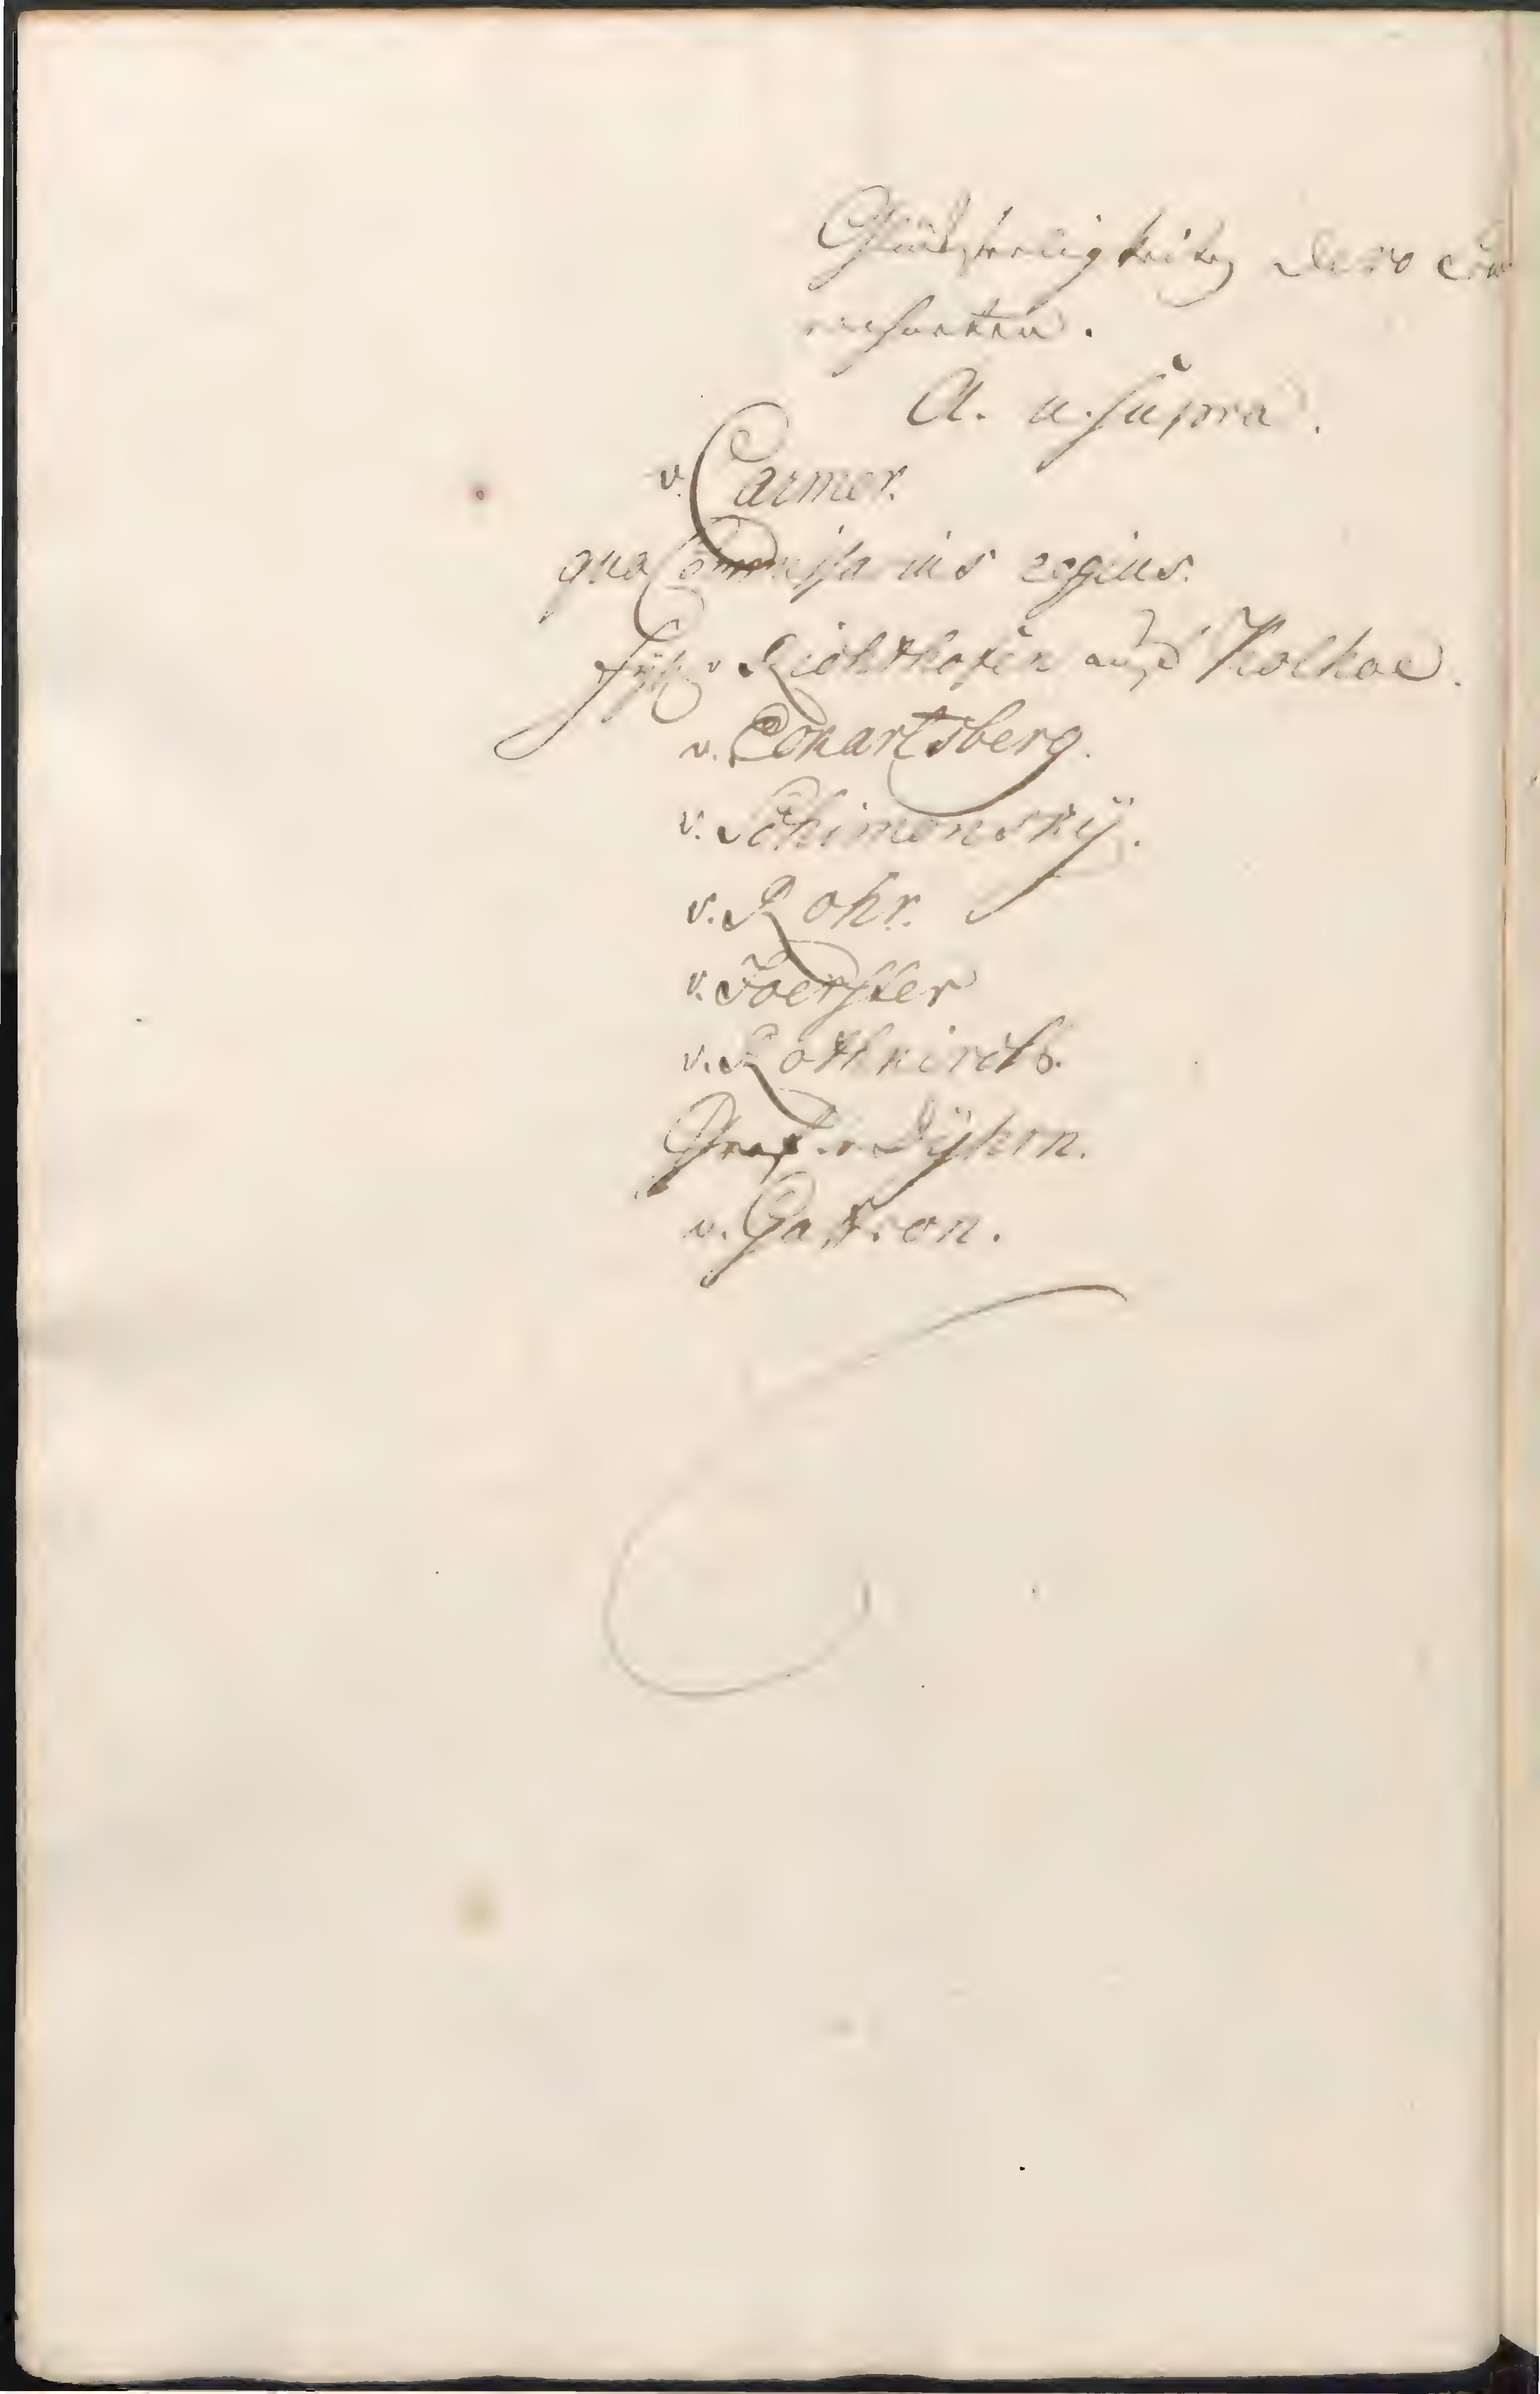 Glückseeligkeiten dero
A. u. supra.
v. Carmer.
qua Commissarius regius.
v. Richthofen auf Kolhae.
v. Eckartsberg.
v. Schimonskÿ.
v. Rohr.
v. Foerster
v. Rothkirch.
Graf v. Dÿhrn.
v. Gaffron.